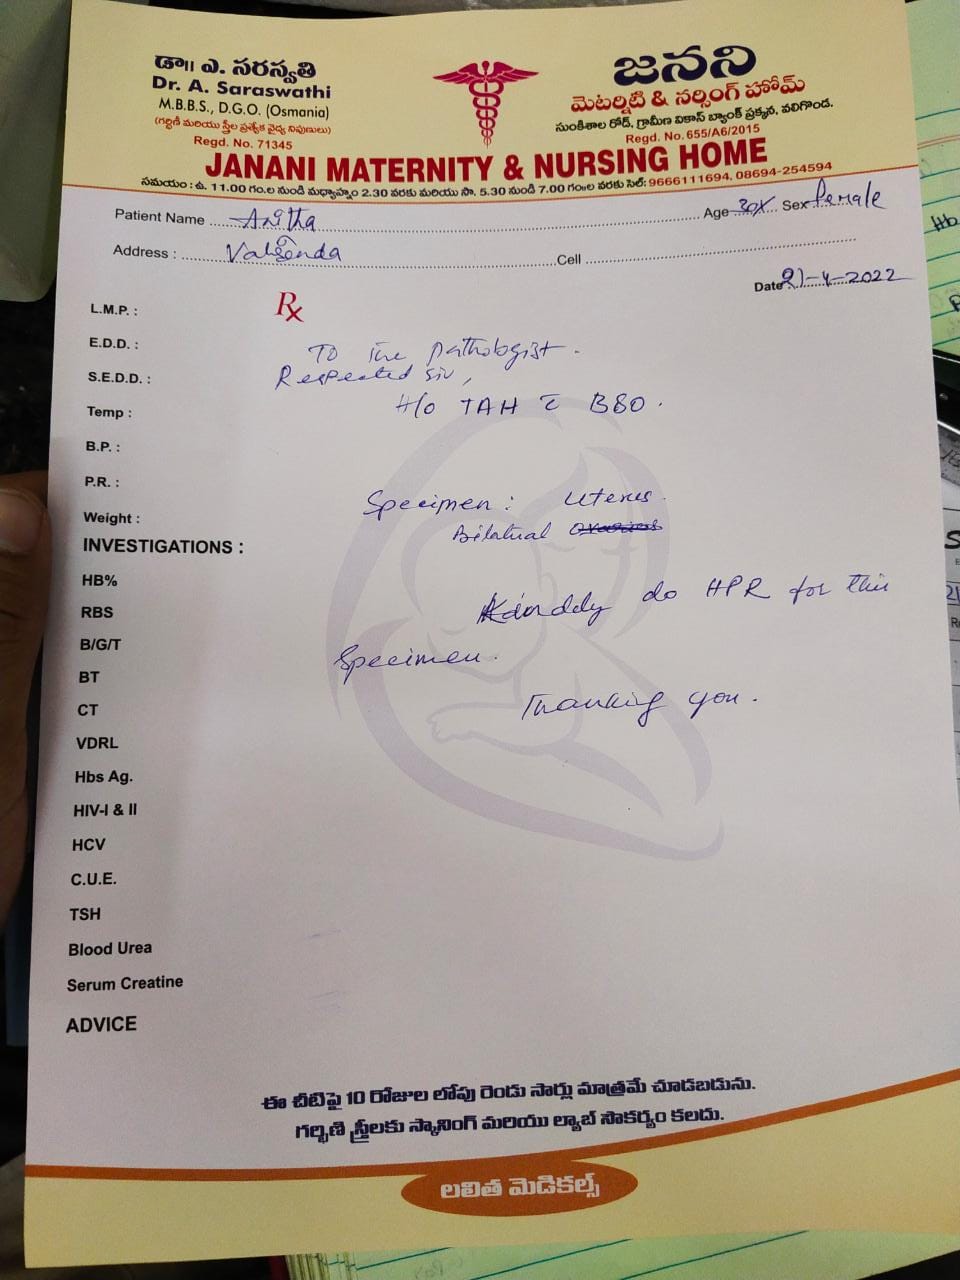 డా॥ ఎ. సరస్వతి
Dr. A. Saraswathi
M.B.B.S., D.G.O. (Osmania)
(గర్భిణి మరియు స్త్రీల ప్రత్యేక వైద్య నిపుణులు)
Regd. No. 71345
జనని
మెటర్నిటి & నర్సింగ్ హోమ్
సుంకిశాల రోడ్, గ్రామీణ వికాస్ బ్యాంక్ ప్రక్కన, వలిగొండ.
Regd. No. 655/A6/2015
JANANI MATERNITY & NURSING HOME
సమయం : ఉ. 11.00 గం.ల నుండి మధ్యాహ్నం 2.30 వరకు మరియు సా. 5.30 నుండి 7.00 గం॥ల వరకు సెల్: 9666111694, 08694-254594
Patient Name Anitha Age 30Y Sex Female
Address : Valigonda Cell
Date 21-4-2022
L.M.P. : Rx
E.D.D. : To the pathologist.
S.E.D.D. : Respected sir,
Temp : H/o TAH c BSO.
B.P. :
P.R. :
Specimen : Uterus.
Weight : Bilatual
INVESTIGATIONS :
HB% Kinddly do HPR for this
RBS
B/G/T Specimen.
BT Thanking you.
CT
VDRL
Hbs Ag.
HIV-I & II
HCV
C.U.E.
TSH
Blood Urea
Serum Creatine
ADVICE
ఈ చీటిపై 10 రోజుల లోపు రెండు సార్లు మాత్రమే చూడబడును.
గర్భిణి స్త్రీలకు స్కానింగ్ మరియు ల్యాబ్ సౌకర్యం కలదు.
లలిత మెడికల్స్